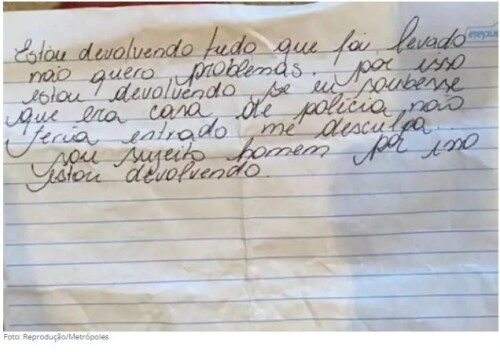 Estou devolvendo tudo que foi levado
não quero problemas. por isso
estou devolvendo se eu soubesse
que era casa de policia não
teria entrado me desculpa.
sou sujeito homem por isso
estou devolvendo.
Foto: Reprodução/Metrópoles